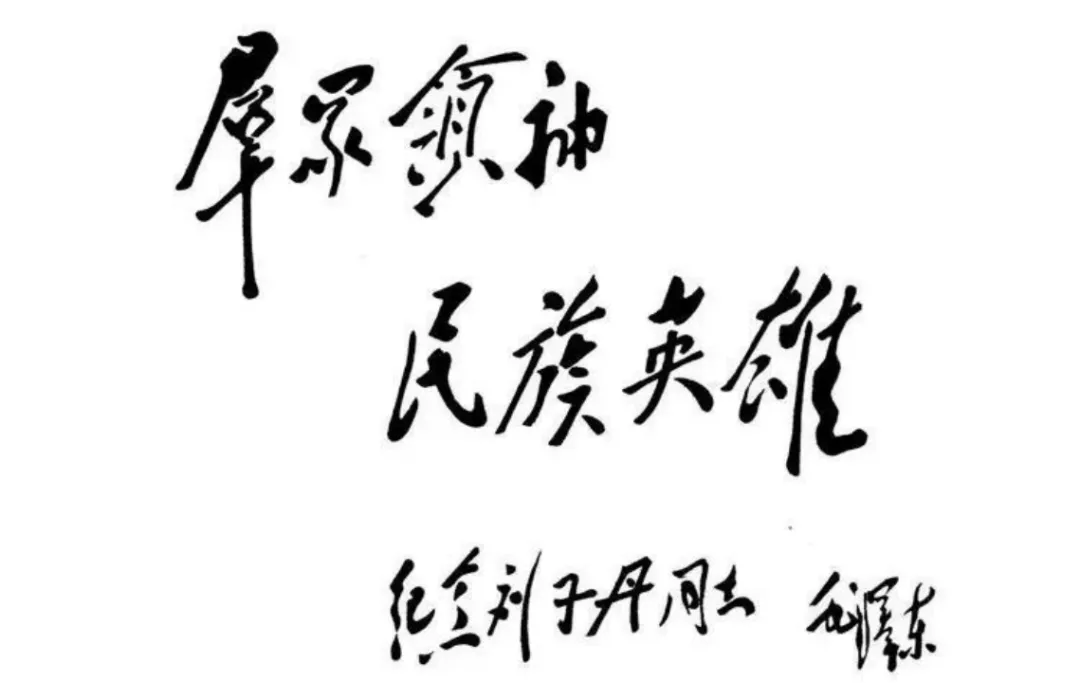 羣眾領袖
民族英雄
纪念刘子丹同志 毛澤东